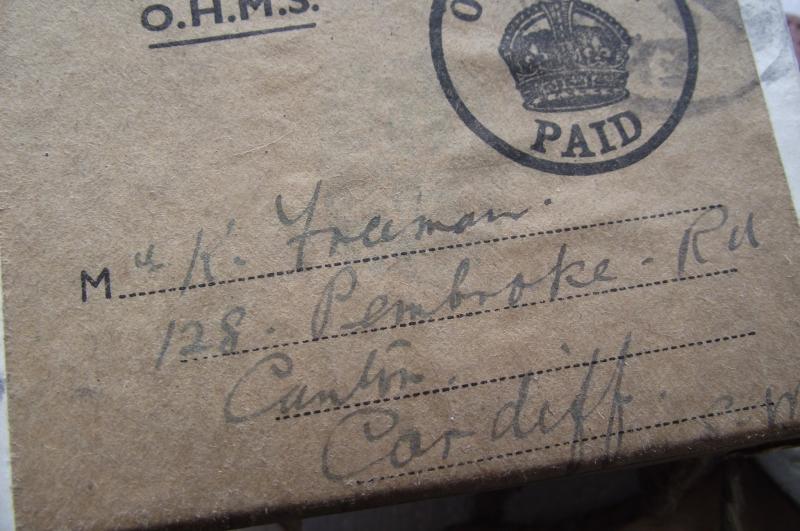 O.H.M.S.
PAID
Mrs K. Freeman.
128. Pembroke. Rd
Canton.
Cardiff.